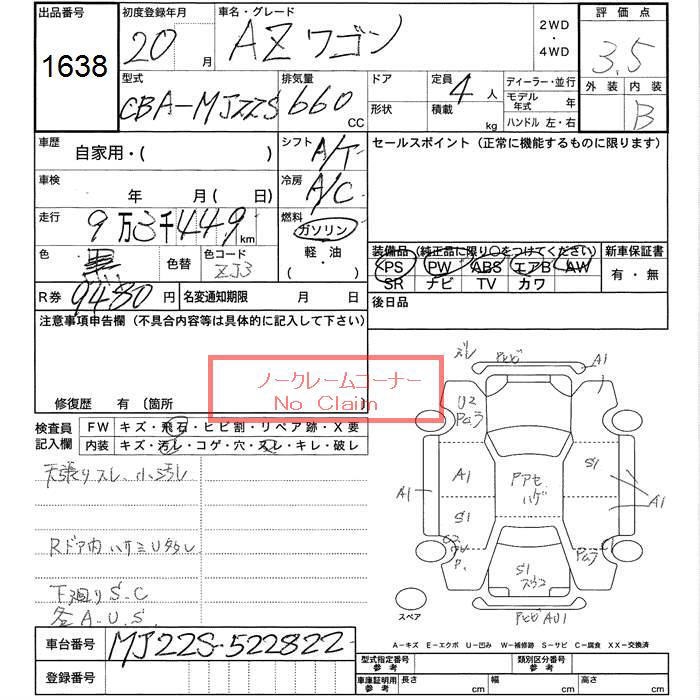 出品番号 初度登録年月 車名・グレード 2WD・4WD 評価点
1638 20月 AZワゴン 3.5
型式 排気量 ドア 定員 ディーラー・並行 外装 内装
CBA-MJ22S 660 CC 形状 4人 モデル年式 年 B
積載 kg ハンドル 左・右
車歴 自家用・( ) シフト A/T セールスポイント(正常に機能するものに限ります)
車検 年 月(日) 冷房 A/C
走行 9万3千449km 燃料 ガソリン
軽・油
( ・ )
色 黒 色替 色コード ZJ3
装備品(純正品に限り○をつけてください) 新車保証書
PS PW ABS エアB AW 有・無
SR ナビ TV カワ
R券 9480円 名変通知期限 月 日 後日品
注意事項申告欄(不具合内容等は具体的に記入して下さい)
ノークレームコーナー
No Claim
修復歴 有(箇所 )
検査員記入欄 FW キズ・飛石・ヒビ割・リペア跡・X要
内装 キズ・汚レ・コゲ・穴・スレ・キレ・破レ
天張りスレ、小汚レ
Rドア内ハサミU多シ
下廻りS.C
各A.U.S.
スレ
A1
U2
A1
S1
A1
S1
A1
Pアセ
ハゲ
S1
スペア
A-キズ E-エクボ U-凹み W-補修跡 S-サビ C-腐食 XX-交換済
車台番号 MJ22S-522822
登録番号
型式指定番号 参考 類別区分番号 参考
車庫証明用 参考 長さ cm 幅 cm 高さ cm